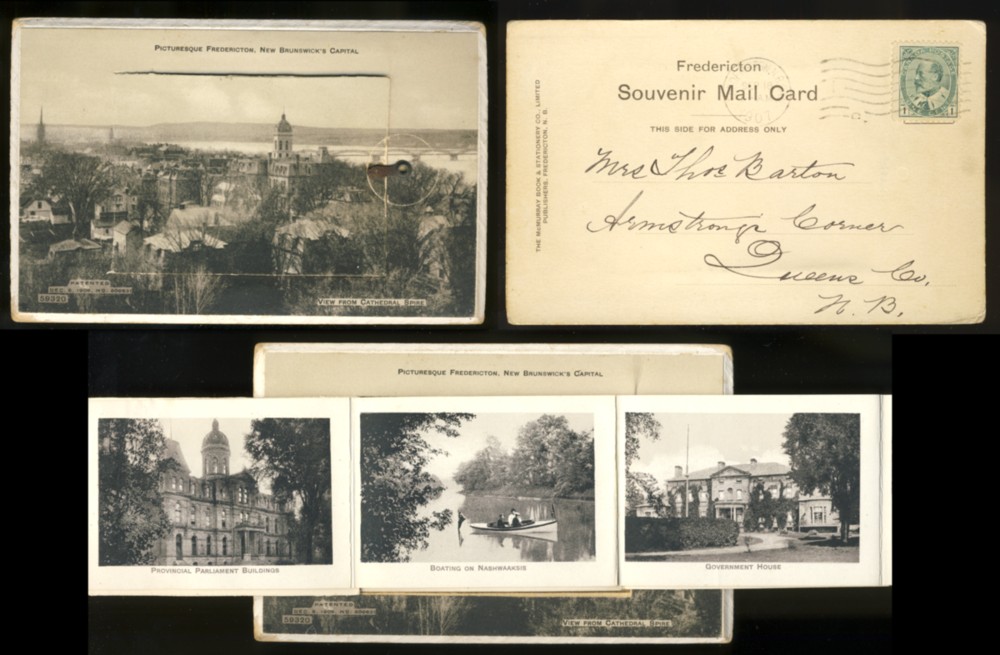 PICTURESQUE FREDERICTON, NEW BRUNSWICK'S CAPITAL
PATENTED
59320
VIEW FROM CATHEDRAL SPIRE
Fredericton
Souvenir Mail Card
THIS SIDE FOR ADDRESS ONLY
THE MCMURRAY BOOK & STATIONERY CO., LIMITED
PUBLISHERS, FREDERICTON, N. B.
1907
1 1
Mrs Thos Barton
Armstrong's Corner
Queens Co.
N. B.
PICTURESQUE FREDERICTON, NEW BRUNSWICK'S CAPITAL
PROVINCIAL PARLIAMENT BUILDINGS
BOATING ON NASHWAAKSIS
GOVERNMENT HOUSE
PATENTED
59320
VIEW FROM CATHEDRAL SPIRE